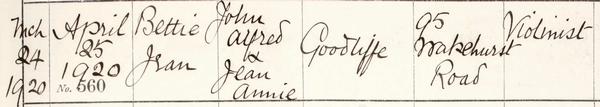 Mch
24
1920
April
25
1920
No. 560
Bettie
Jean
John
Alfred
&
Jean
Annie
Goodliffe
95
Wakehurst
Road
Violinist